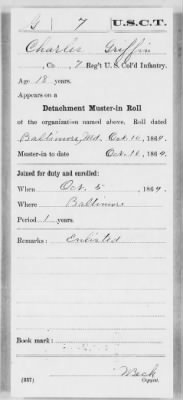 G 7 U.S.C.T.
Charles Griffin
, Co. , 7 Reg't U. S. Col'd Infantry.
Age 18 years.
Appears on a
Detachment Muster-in Roll
of the organization named above. Roll dated
Baltimore, Md. Oct. 16, 1864.
Muster-in to date Oct. 16, 1864.
Joined for duty and enrolled:
When Oct. 5, 1864.
Where Baltimore
Period 1 years.
Remarks: Enlisted
Book mark:
(337) Beck
Copyist.